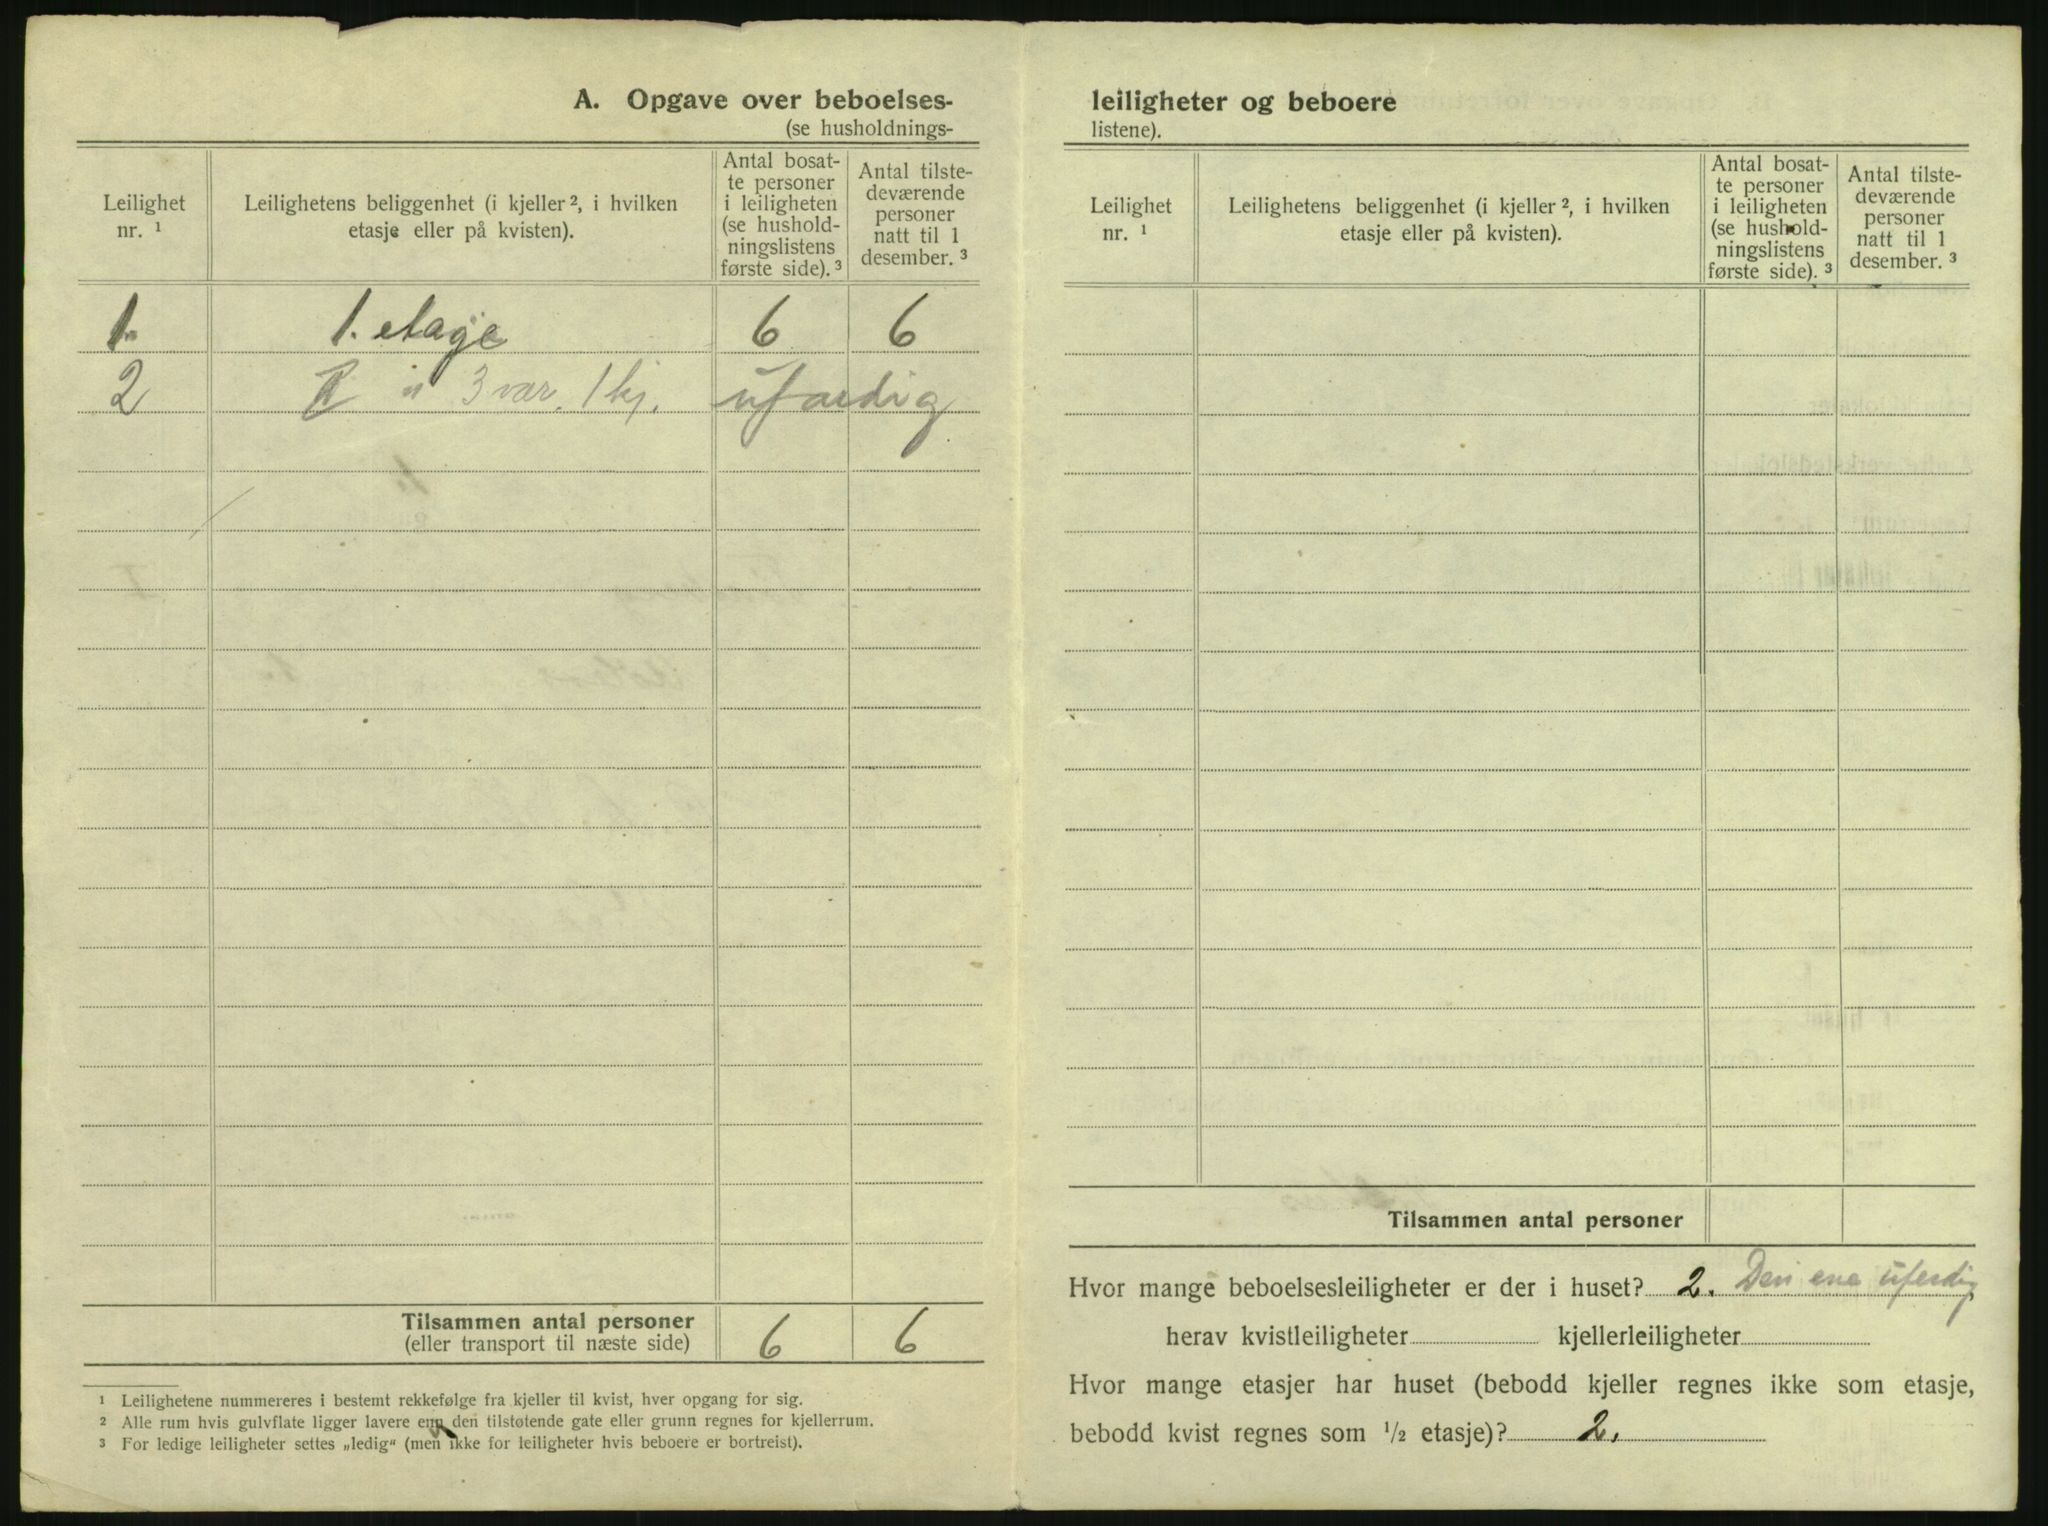 A. Opgave over beboelses-
(se husholdnings-
Leilighet nr. ¹
Leilighetens beliggenhet (i kjeller ², i hvilken etasje eller på kvisten).
Antal bosat-
te personer
i leiligheten
(se hushold-
ningslistens
første side). ³
Antal tilste-
deværende
personer
natt til 1
desember. ³
1. 1. etage 6 6
2 " 3 vær. 1 kj. ufærdig
Tilsammen antal personer 6 6
(eller transport til næste side)
¹ Leilighetene nummereres i bestemt rekkefølge fra kjeller til kvist, hver opgang for sig.
² Alle rum hvis gulvflate ligger lavere enn den tilstøtende gate eller grunn regnes for kjellerrum.
³ For ledige leiligheter settes „ledig“ (men ikke for leiligheter hvis beboere er bortreist).
leiligheter og beboere
listene).
Leilighet nr. ¹
Leilighetens beliggenhet (i kjeller ², i hvilken etasje eller på kvisten).
Antal bosat-
te personer
i leiligheten
(se hushold-
ningslistens
første side). ³
Antal tilste-
deværende
personer
natt til 1
desember. ³
Tilsammen antal personer
Hvor mange beboelsesleiligheter er der i huset? 2. Den ene uferdig
herav kvistleiligheter kjellerleiligheter
Hvor mange etasjer har huset (bebodd kjeller regnes ikke som etasje,
bebodd kvist regnes som ½ etasje)? 2.